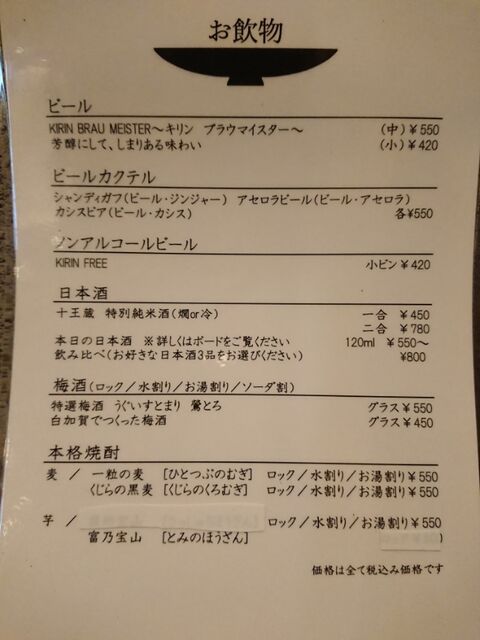 お飲物
ビール
KIRIN BRAU MEISTER～キリン ブラウマイスター～ (中)￥550
芳醇にして、しまりある味わい (小)￥420
ビールカクテル
シャンディガフ(ビール・ジンジャー) アセロラビール(ビール・アセロラ)
カシスビア(ビール・カシス) 各¥550
ノンアルコールビール
KIRIN FREE 小ビン￥420
日本酒
十王蔵 特別純米酒(燗or冷) 一合 ￥450
二合 ￥780
本日の日本酒 ※詳しくはボードをご覧ください 120ml ￥550～
飲み比べ(お好きな日本酒3品をお選びください) ¥800
梅酒(ロック／水割り／お湯割り／ソーダ割)
特選梅酒 うぐいすとまり 鶯とろ グラス￥550
白加賀でつくった梅酒 グラス￥450
本格焼酎
麦 ／ 一粒の麦 [ひとつぶのむぎ] ロック／水割り／お湯割り￥550
くじらの黒麦 [くじらのくろむぎ] ロック／水割り／お湯割り￥550
芋 ／ ロック／水割り／お湯割り￥550
富乃宝山 [とみのほうざん]
価格は全て税込み価格です